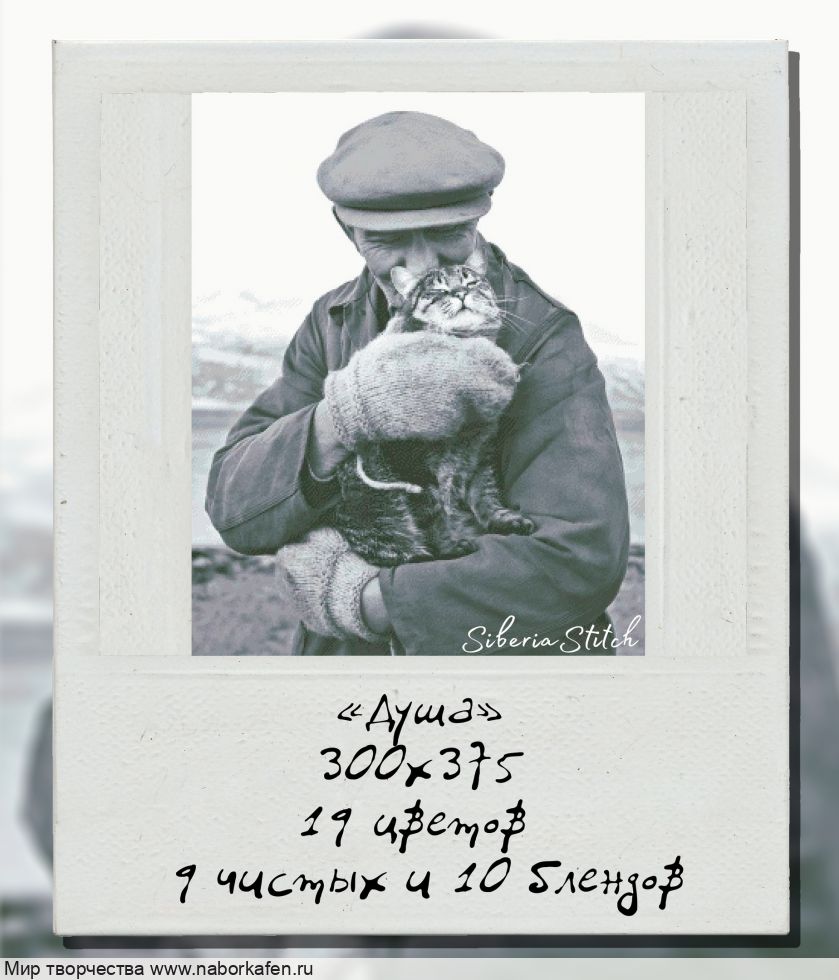 Siberia Stitch
«Душа»
300х375
19 цветов
9 чистых и 10 блендов
Мир творчества www.naborkafen.ru